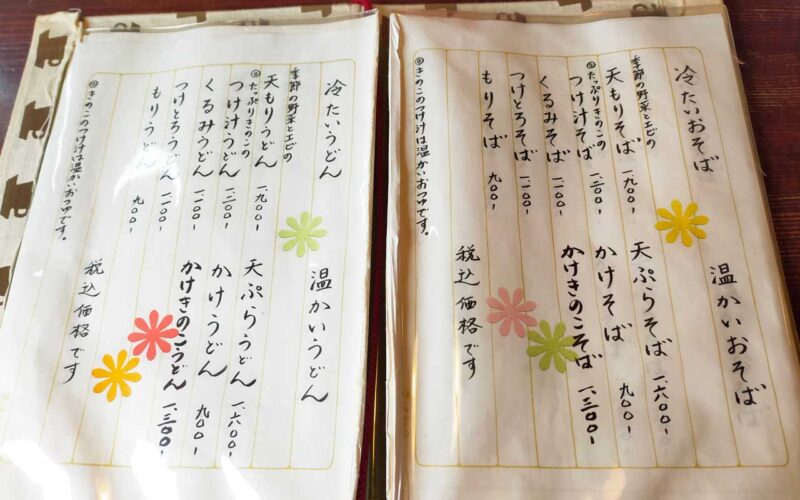 冷たいおそば
季節の野菜とエビの
天もりそば 一、九〇〇-
◎たっぷりきのこの
つけ汁そば 一、二〇〇-
くるみそば 一、一〇〇-
つけとろそば 一、一〇〇-
もりそば 九〇〇-
◎きのこのつけ汁は温かいおつゆです。
温かいおそば
天ぷらそば 一、六〇〇-
かけそば 九〇〇-
かけきのこそば 一、三〇〇-
税込価格です
冷たいうどん
季節の野菜とエビの
天もりうどん 一、九〇〇-
◎たっぷりきのこの
つけ汁うどん 一、二〇〇-
くるみうどん 一、一〇〇-
つけとろうどん 一、一〇〇-
もりうどん 九〇〇-
◎きのこのつけ汁は温かいおつゆです。
温かいうどん
天ぷらうどん 一、六〇〇-
かけうどん 九〇〇-
かけきのこうどん 一、三〇〇-
税込価格です